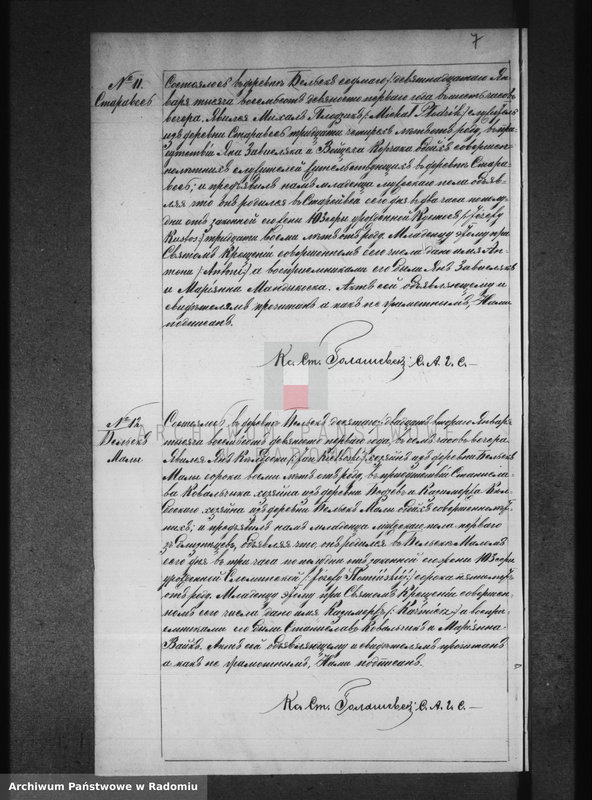 7
№ 11.
Старавесь
Состоялось въ деревнѣ Бельскъ седмаго/девятнадцатаго Ян-
варя тысяча восемьсотъ девяносто перваго года въ шесть часовъ
вечера. Явился Михалъ Плодзикъ /Michał Płodzik/ служитель
изъ деревни Старавесь тридцати четырехъ лѣтъ отъ роду, въ при-
сутствіи Яна Зависляка и Войцеха Корчака обоихъ совершен-
нолѣтнихъ служителей жительствующихъ въ деревнѣ Стара-
весь; и предъявилъ намъ младенца мужескаго пола объяв-
ляя что онъ родился въ Старейвси сего дня въ два часа по полу-
дни отъ законной его жены Юзефы урожденной Кустосъ /Józefy
Kustos/ тридцати восьми лѣтъ отъ роду. Младенцу этому при
Святомъ Крещеніи совершенномъ сего числа дано имя Ан-
тони /Antoni/ а воспріемниками его были Янъ Завислякъ
и Маріянна Мандикоска. Актъ сей объявляющему и
свидѣтелямъ прочитанъ а какъ не грамотнымъ, Нами
подписанъ.
Кс. Ст. Голашевскі С. А. Г. С.
№ 12.
Бельскъ
Малы
Состоялось въ деревнѣ Бельскъ десятаго/двадцать втораго Января
тысяча восемьсотъ девяносто перваго года, въ семь часовъ вечера.
Явился Янъ хозяинъ изъ деревни Бельскъ
Малы сорока восьми лѣтъ отъ роду, въ присутствіи Станисла-
ва Ковальчика хозяина изъ деревни и Казимера
хозяина изъ деревни Бельскъ Малы обоихъ совершеннолѣт-
нихъ; и предъявилъ намъ младенца мужескаго пола перваго
изъ близнецовъ, объявляя что, онъ родился въ Бельскѣ Маломъ
сего дня въ три часа по полудни отъ законной его жены Юзефы
урожденной Сломинской /Józefy Słomińskiej/ сорока пяти лѣтъ
отъ роду. Младенцу этому при Святомъ Крещеніи совершен-
номъ сего числа дано имя Казимеръ /Kazimierz/ а воспрі-
емниками его были Станиславъ Ковальчикъ и Маріянна
Вайкъ. Актъ сей объявляющему и свидѣтелямъ прочитанъ
а какъ не грамотнымъ, Нами подписанъ.
Кс. Ст. Голашевскі С. А. Г. С.
ARCHIWUM PAŃSTWOWE
W RADOMIU
Archiwum Państwowe w Radomiu